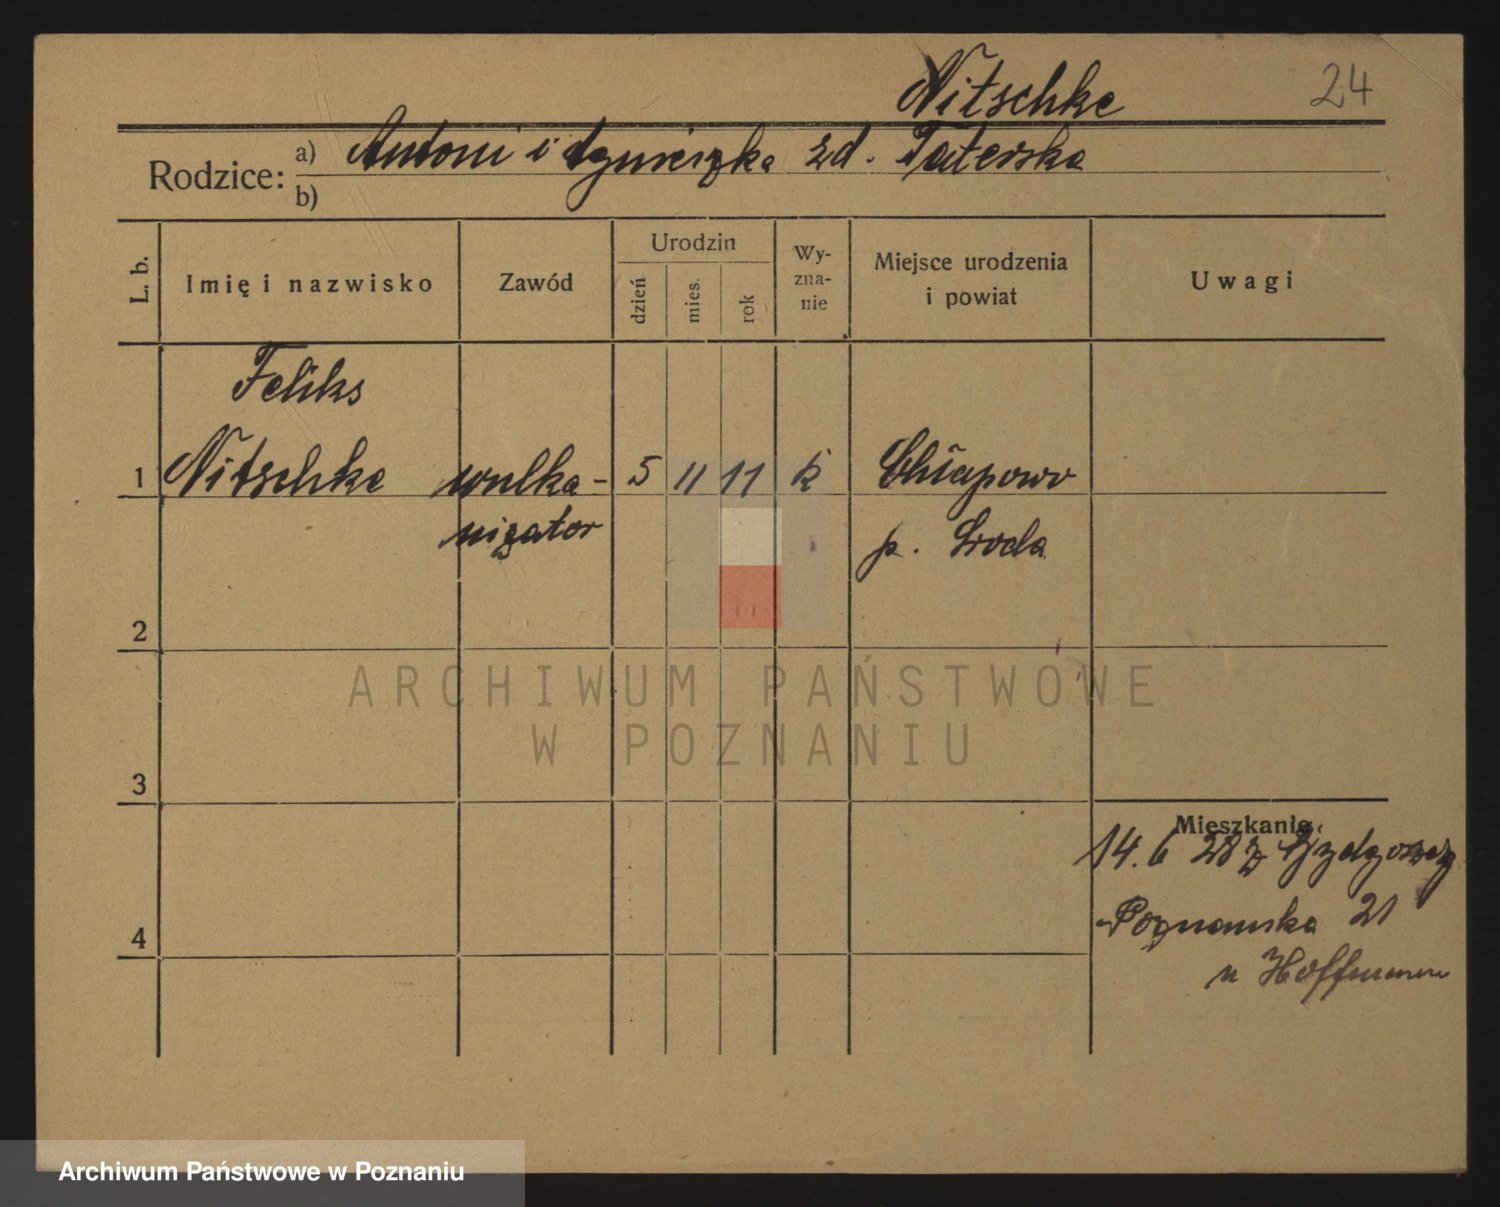 Nitschke
24
Rodzice: a) Antoni i Agnieszka zd. Taterska
b)
L. b.
Imię i nazwisko
Zawód
Urodzin
dzień
mies.
rok
Wy-
zna-
nie
Miejsce urodzenia
i powiat
Uwagi
Feliks
1 Nitschke wulka- 5 11 11 k Chłapowo
nizator p. Środa
2
ARCHIWUM PAŃSTWOWE
W POZNANIU
3
Mieszkanie
14.6 28 z Bydgoszczy
4 Poznanska 21
u Hoffmann
Archiwum Państwowe w Poznaniu